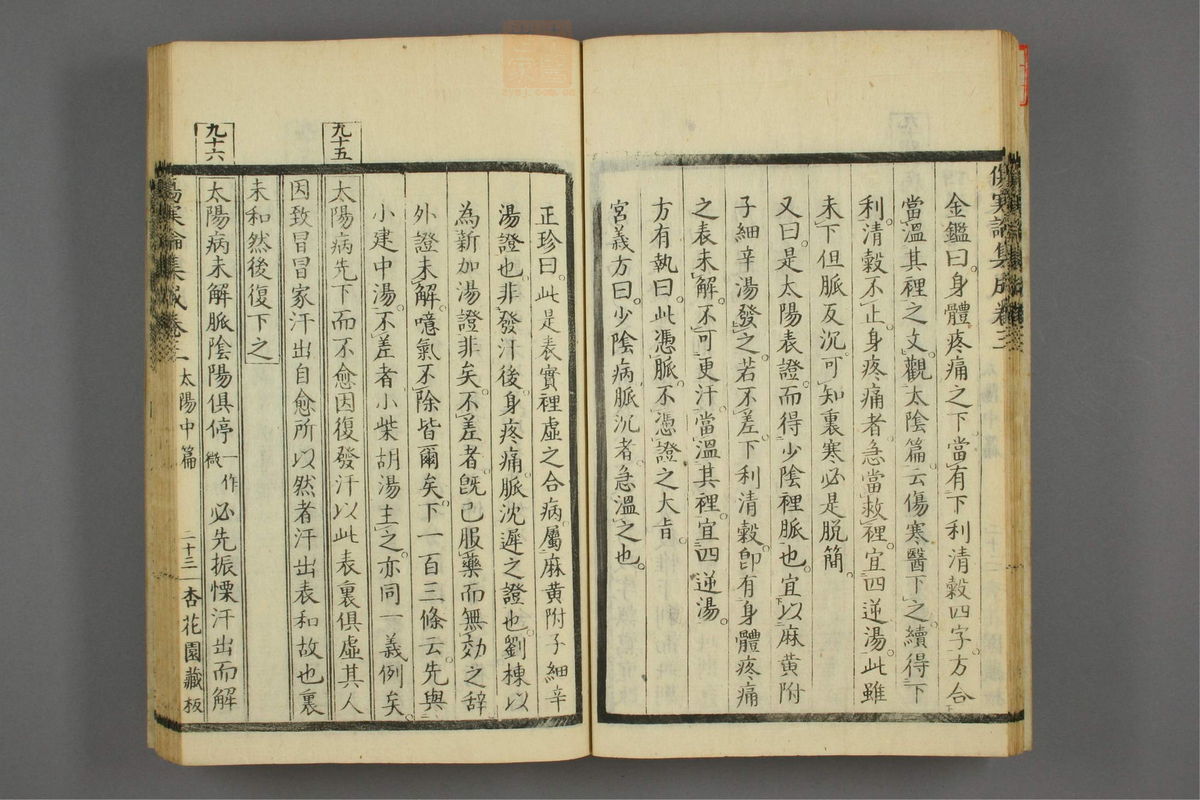 傷寒論集成卷三
金鑑曰身體疼痛之下當有下利清穀四字方合
當溫其裡之文觀太陰篇云傷寒醫下之續得下
利清穀不止身疼痛者急當救裡宜四逆湯此雖
未下但脈反沉可知裏寒必是脫簡
又曰是太陽表證而得少陰裡脈也宜以麻黃附
子細辛湯發之若不差下利清穀卽有身體疼痛
之表未解不可更汗當溫其裡宜四逆湯
方有執曰此憑脈不憑證之大旨
宮義方曰少陰病脈沉者急溫之也
正珍曰此是表實裡虛之合病屬麻黃附子細辛
湯證也非發汗後身疼痛脈沈遲之證也劉棟以
為新加湯證非矣不差者旣已服藥而無効之辞
外證未解噫氣不除皆爾矣下一百三條云先與
小建中湯不差者小柴胡湯主之亦同一義例矣
九十五
太陽病先下而不愈因復發汗以此表裏俱虛其人
因致冒冒家汗出自愈所以然者汗出表和故也裏
未和然後復下之
九十六
太陽病未解脈陰陽俱停一作微必先振慄汗出而解
傷寒論集成卷三 太陽中篇 二十三 杏花園藏板